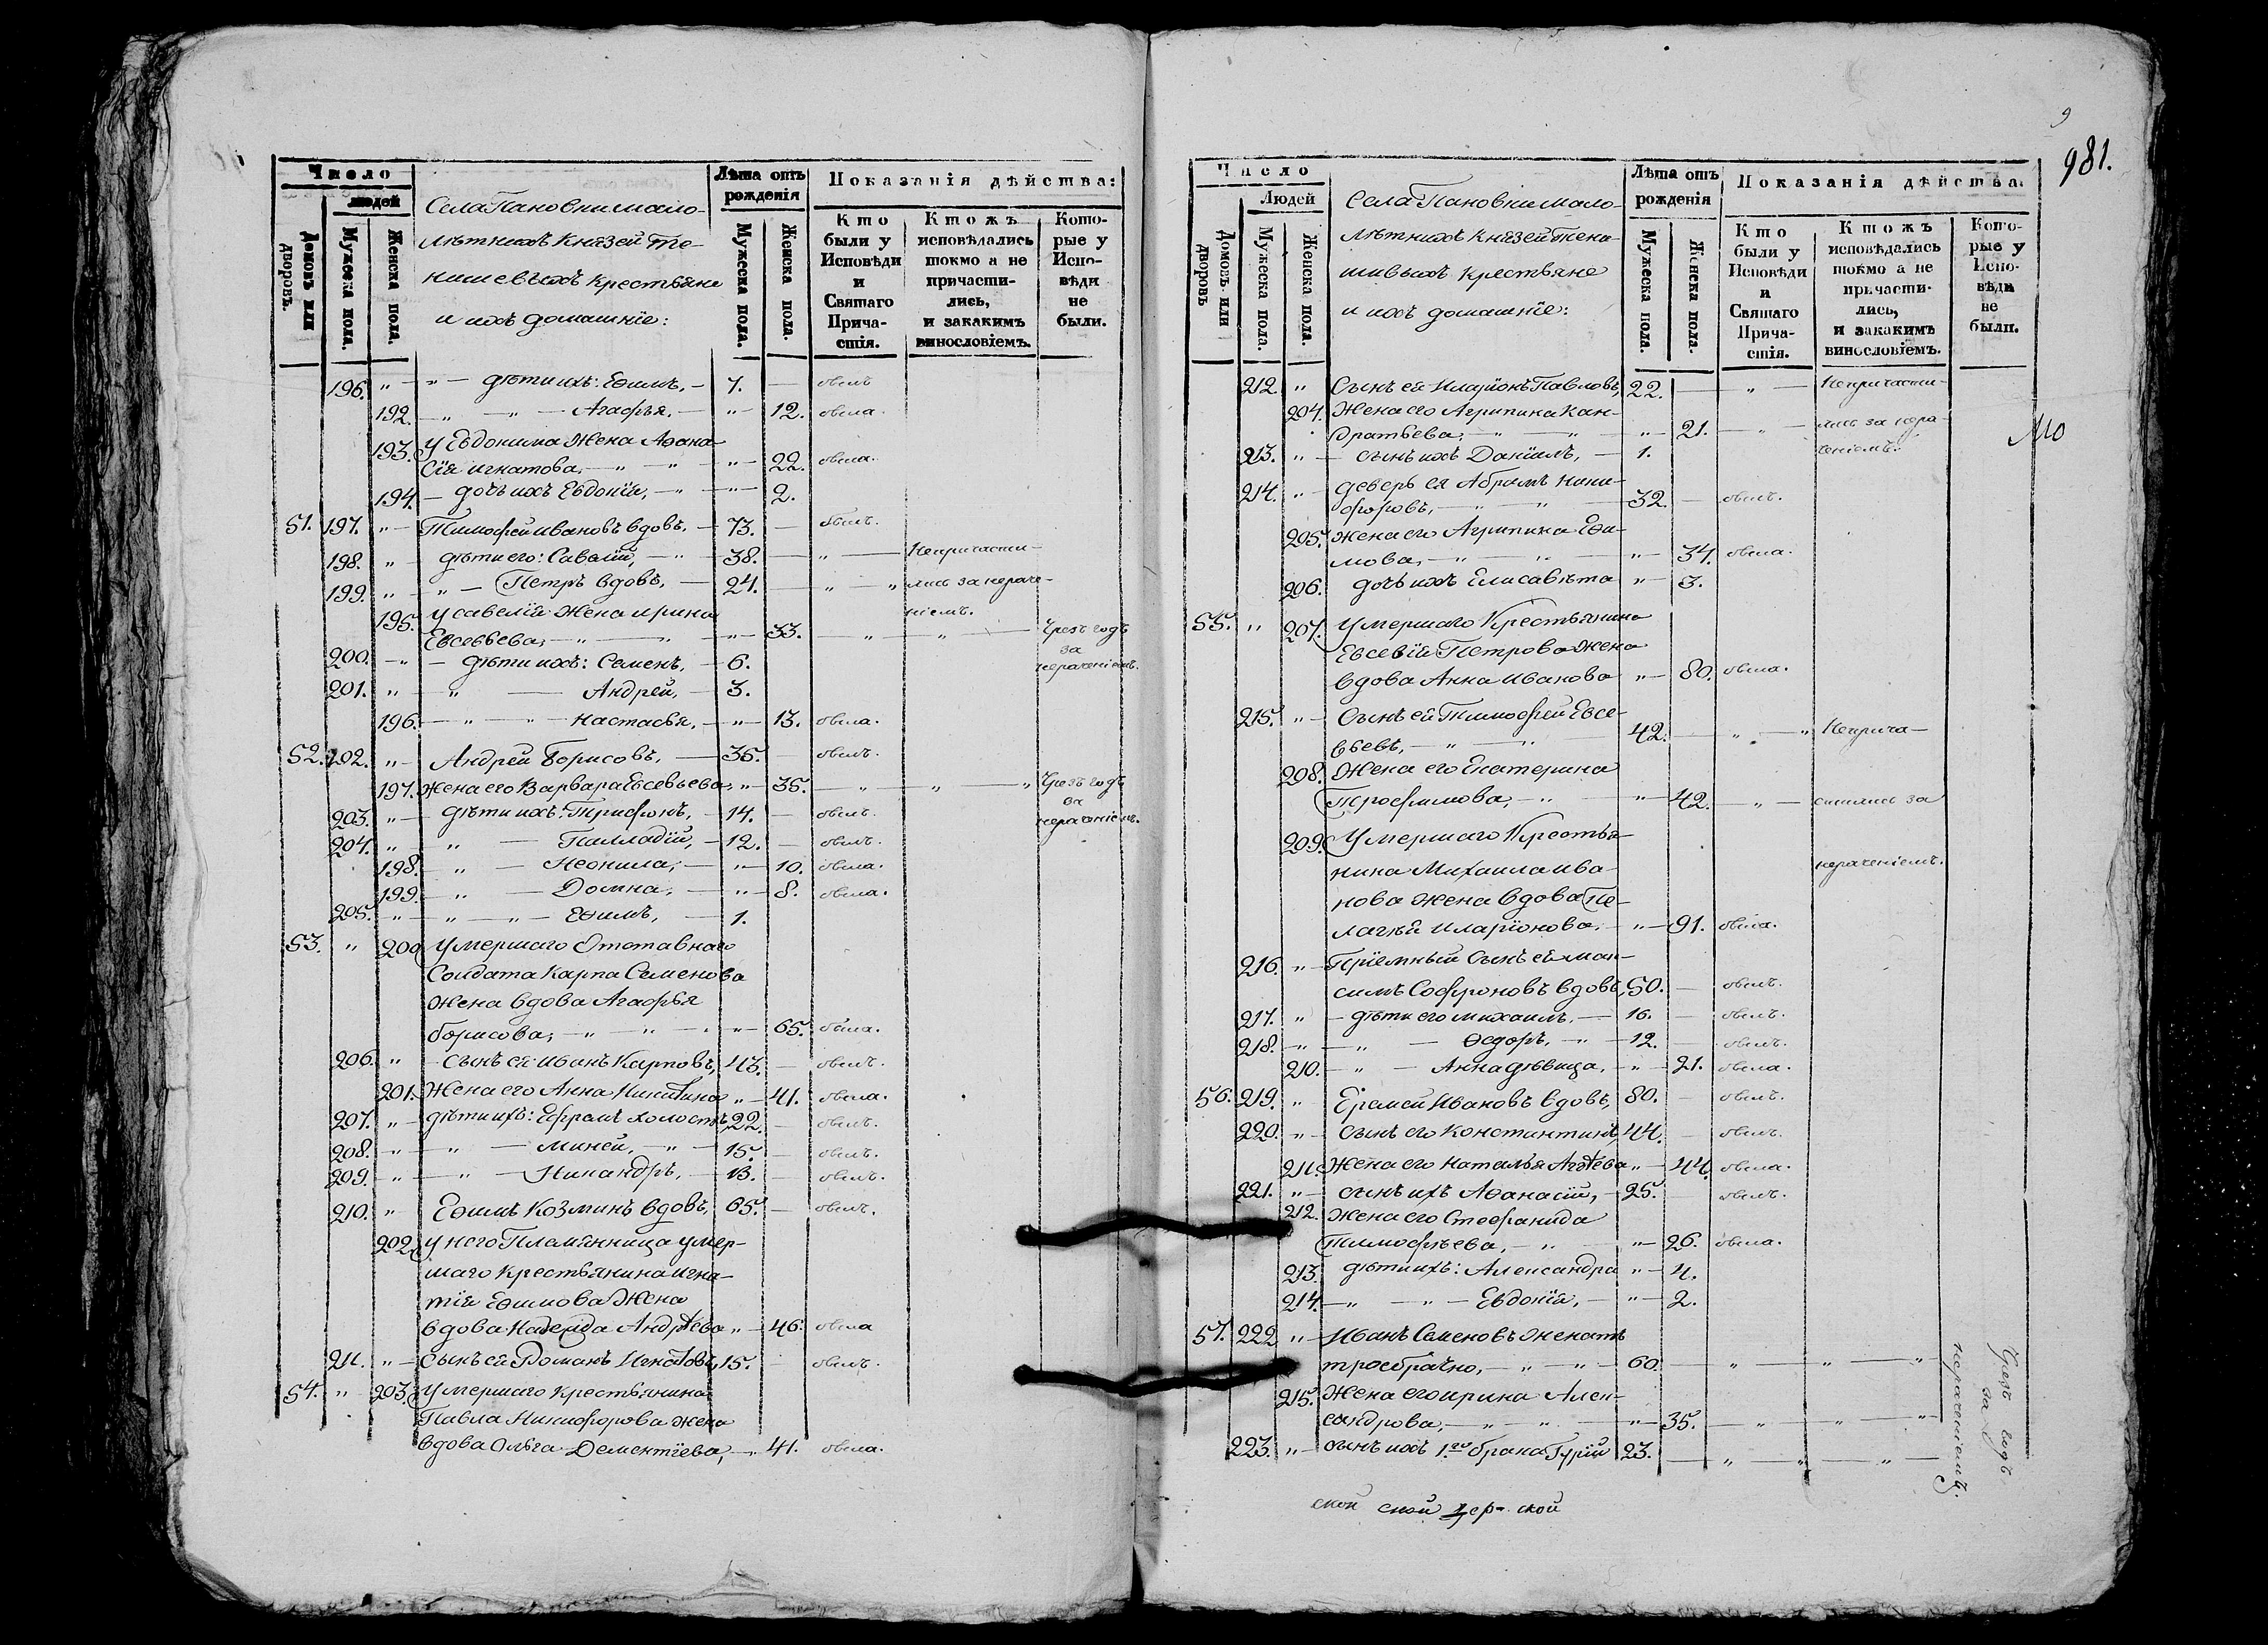 Число
людей
Домовъ или дворовъ.
Мужеска пола.
Женска пола.
Села Пановки мало-
лѣтнихъ Князей Те-
нишевыхъ крестьяне
и ихъ домашніе:
Лѣта отъ рожденія
Мужеска пола.
Женска пола.
Показанія дѣйства:
Кто были у Исповѣди и Святаго Прича-стія.
Ктожъ исповѣдались токмо а не причасти-лись, и закакимъ винословіемъ.
Кото-рые у Испо-вѣди не были.
196. „ — „ — дѣти ихъ: Еѳимъ, — 7. — былъ
192. — „ — „ — Агафья, — „ — 12. была.
193. У Евдокима Жена Аѳана-
сія Игнатова, — „ — „ — „ — 22. была.
194. — дочь ихъ Евдокія, — „ — „ — 2.
51. 197. „ — Тимофей Ивановъ вдовъ, — 73. — былъ.
198. „ — дѣти его: Савелій, — „ — 38. — „ — Непричасти-
199. „ — „ — Петръ вдовъ, — 24. — „ — „ лись за нераче-
195. У Савелія Жена Ирина ніемъ.
Евсевьева, — „ — „ — „ — 33. — „ — „ — Чрезъ годъ
за
200. — „ — дѣти ихъ: Семенъ, — 6. нераченіемъ.
201. „ — „ — Андрей, — 3.
196. — „ — „ — Настасья, — „ — 13. была.
52. 202. „ — Андрей Борисовъ, — 36. — былъ.
197. Жена его Варвара Евсевьева, „ — 36. — „ — „ — „ Чрезъ годъ
за
203. „ — дѣти ихъ: Трифонъ, — 14. — былъ. нераченіемъ.
204. „ — „ — Палладій, — 12. — былъ.
198. „ — Неонила, — „ — 10. была.
199. — „ — Домна, — „ — 8. была.
205. „ — „ — „ — Еѳимъ, — 1.
53. „ 200. Умершаго Отставнаго
Солдата Карпа Семенова
Жена вдова Агафья
Борисова, — „ — „ — „ — 65. была.
206. „ — Сынъ ея Иванъ Карповъ, 43. — былъ.
201. Жена его Анна Никитина „ — 41. была.
207. „ — дѣти ихъ: Ефремъ холостъ, 22. — былъ.
208. „ — „ — Миней, — „ — 15. — былъ.
209. „ — „ — Никандръ, — 13. — былъ.
210. „ Еѳимъ Козминъ вдовъ, 65. — былъ.
202. У него Племянница умер-
шаго Крестьянина Игна-
тія Еѳимова Жена
вдова Надежда Андрѣева „ — 46. была
211. „ — Сынъ ея Романъ Игнатовъ, 15. — былъ.
54. „ 203. Умершаго Крестьянина
Павла Никифорова жена
вдова Ольга Дементіева, — „ — 41. была.
9
981.
Число
Людей
Домовъ или дворовъ
Мужеска пола.
Женска пола.
Села Пановки мало-
лѣтнихъ Князей Тени-
шевыхъ крестьяне
и ихъ домашніе:
Лѣта отъ рожденія
Мужеска пола.
Женска пола.
Показанія дѣйства.
Кто были у Исповѣди и Святаго Прича-стія.
Ктожъ исповѣдались токмо а не причасти-лись, и закакимъ винословіемъ.
Кото-рые у Испо-вѣди не были.
212. „ Сынъ ея Иларіонъ Павловъ, 22. — „ — Непричасти-
204. Жена его Агрипина Кан-
дратьева, — „ — „ — „ — 21. — „ — лись за нера-
213. „ — сынъ ихъ Даніилъ, — 1. ченіемъ.
214. „ — деверь ея Абрамъ Ники-
форовъ, — „ — „ — 32. — былъ.
205. жена его Агрипина Еѳи-
мова, — „ — „ — „ — 34. была.
206. дочь ихъ Елисавета „ — 3.
55. „ 207. Умершаго Крестьянина
Евсевія Петрова Жена
вдова Анна Иванова „ — 80. была.
215. „ — Сынъ ея Тимофей Евсе-
вьевъ, — „ — „ — 42. — „ — „ Неприча-
208. Жена его Екатерина
Трофимова, — „ — „ — 42. — „ — стились за
209. Умершаго Крестья-
нина Михаила Ива- нераченіемъ.
нова Жена вдова Пе-
лагея Иларіонова, — „ — 91. была.
216. „ — Пріемный Сынъ ея Мак-
симъ Софроновъ вдовъ, 50. — былъ.
217. „ — дѣти его Михаилъ, — 16. — былъ.
218. — „ — „ — Ѳедоръ, — „ — 12. — былъ.
210. — „ — Анна дѣвица, — „ — 21. была.
56. 219. „ Еремей Ивановъ вдовъ, 80. — былъ.
220. „ — Сынъ его Константинъ, 44. — былъ.
211. Жена его Наталья Агѣева „ — 44. была.
221. „ — сынъ ихъ Аѳанасій, — 25. — былъ.
212. Жена его Стефанида
Тимофѣева, — „ — „ — 26. была.
213. дѣти ихъ: Александра „ — 4.
214. — „ — „ — Евдокія, — „ — 2.
57. 222. „ — Иванъ Семеновъ женатъ
троебрачно, — „ — „ — 60. — „ — „ — „
215. Жена его Ирина Алек-
сандрова, — „ — „ — „ — 35. — „ — „ — „
223. „ — сынъ ихъ 1.го брака Гурій 23. — „ — „ — „ —
Чрезъ годъ
за
нераченіемъ.
ской ской цер- ской